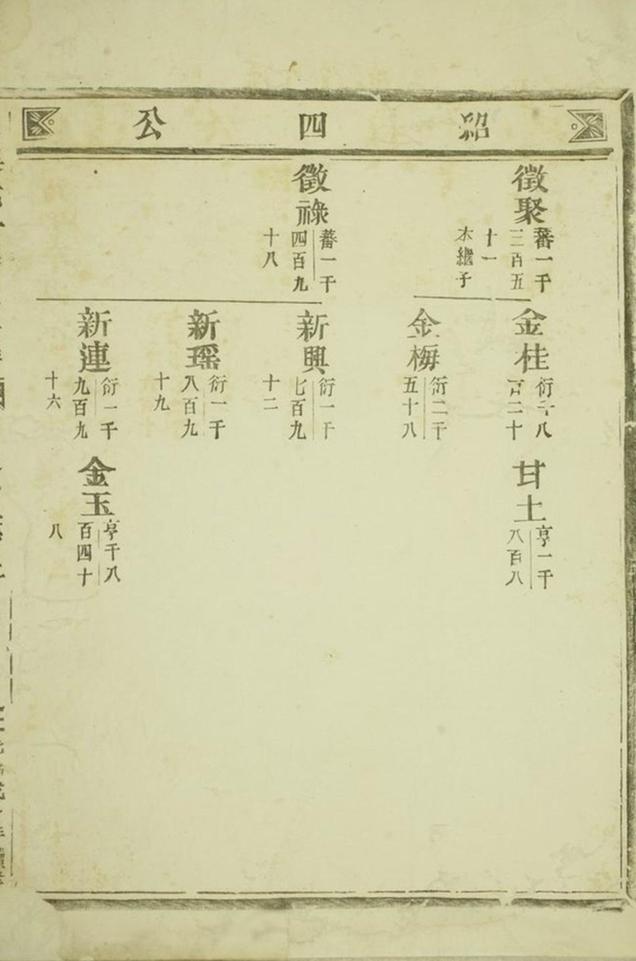 紹四公
徵聚
蕃一千
三百五
十一
木繼子
徵祿
蕃一千
四百九
十八
金桂
衍千八
百二十
金梅
衍二千
五十八
新興
衍一千
七百九
十二
新瑶
衍一千
八百九
十九
新連
衍一千
九百九
十六
甘土
亨一千
八百八
金玉
亨千八
百四十
八